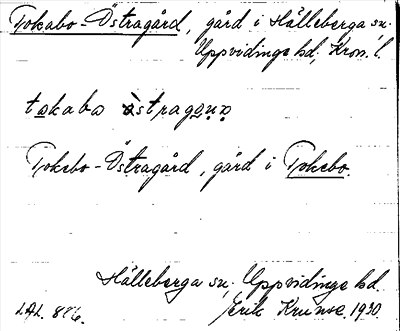 Tokabo-Östragård, gård i Hälleberga sn.
Uppvidinge hd, Kron. l.
tokabo östragọuṇ
Tokebo-Östragård, gård i Tokebo.
Hälleberga sn, Uppvidinge hd.
LAL 886. Erik Krunse 1930.